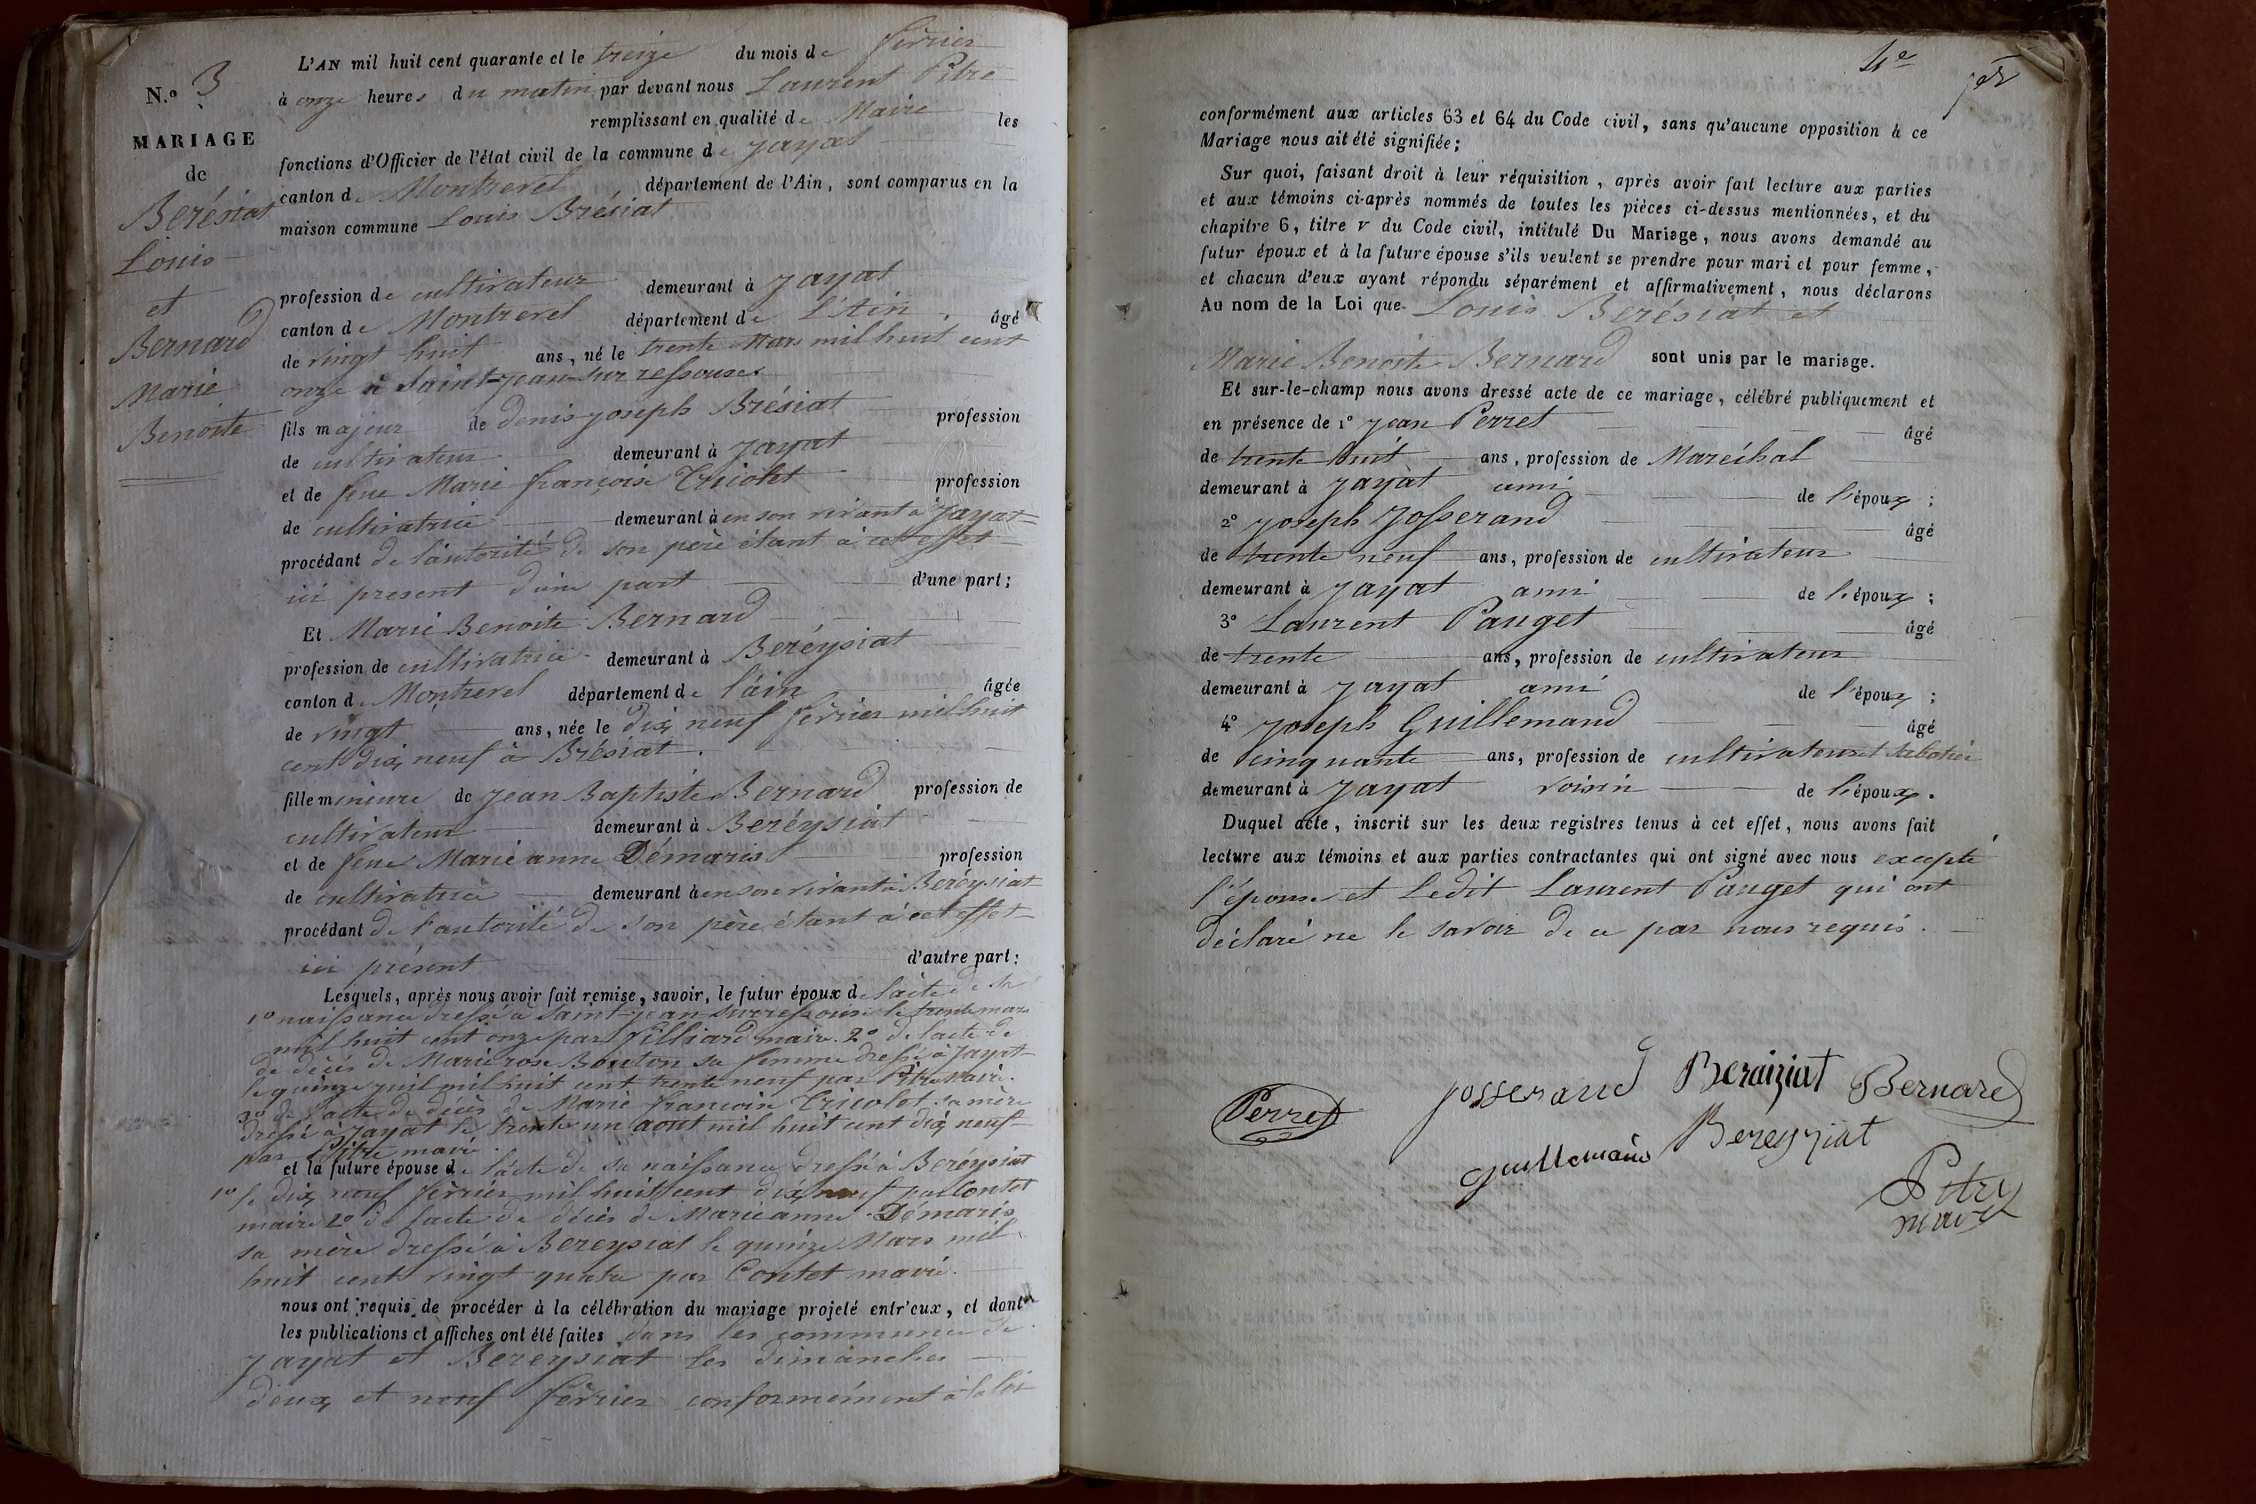 N.o 3
MARIAGE
de
Berésiat
Louis
et
Bernard
Marie
Benoite
L'AN mil huit cent quarante et le treize du mois de février
à onze heures du matin par devant nous Laurent Pitre
remplissant en qualité de Maire les
fonctions d'Officier de l'état civil de la commune de Jayat
canton de Montrevel département de l'Ain, sont comparus en la
maison commune Louis Brésiat
profession de cultivateur demeurant à Jayat
canton de Montrevel département de l'Ain, âgé
de vingt huit ans, né le trente Mars mil huit cent
onze à Saint-jean-sur ressouse
fils majeur de denis joseph Brésiat profession
de cultivateur demeurant à Jayat
et de feue Marie françoise Tricolet profession
de cultivatrice demeurant à en son vivant à Jayat
procédant de l'autorité de son père étant à cet effet
ici present d'une part d'une part;
Et Marie Benoite Bernard
profession de cultivatrice demeurant à Beréysiat
canton de Montrevel département de l'ain âgée
de vingt ans, née le dix neuf février mil huit
cent dix neuf à Brésiat.
fille mineure de jean Baptiste Bernard profession de
cultivateur demeurant à Beréysiat
et de feue Marie anne Démaris profession
de cultivatrice demeurant à en son vivant à Beréysiat
procédant de l'autorité de son père étant à cet effet
ici présent d'autre part;
Lesquels, après nous avoir fait remise, savoir, le futur époux de l'acte de sa
1o naissance dressé à Saint-jean-sur ressouse le trente mars
mil huit cent onze par Villiard maire. 2o de l'acte de
de décès de Marie rose Bouton sa femme dressé à Jayat
le quinze juil mil huit cent trente neuf par Pitre Maire.
3o de l'acte de décès de Marie françoise Tricolet sa mère
dressé à Jayat le trente un aout mil huit cent dix neuf
par Pitre maire.
et la future épouse de l'acte de sa naissance dressé à Beréysiat
1o le dix neuf février mil huit cent dix neuf par Contet
maire 2o de l'acte de décès de Marie anne Démaris
sa mère dressé à Bereysiat le quinze Mars mil
huit cent vingt quatre par Contet maire.
nous ont requis de procéder à la célébration du mariage projeté entr'eux, et dont
les publications et affiches ont été faites dans les communes de
Jayat et Bereysiat les dimanches
deux et neuf février conformément à la loi
4e
conformément aux articles 63 et 64 du Code civil, sans qu'aucune opposition à ce
Mariage nous ait été signifiée;
Sur quoi, faisant droit à leur réquisition, après avoir fait lecture aux parties
et aux témoins ci-après nommés de toutes les pièces ci-dessus mentionnées, et du
chapitre 6, titre v du Code civil, intitulé Du Mariage, nous avons demandé au
futur époux et à la future épouse s'ils veulent se prendre pour mari et pour femme,
et chacun d'eux ayant répondu séparément et affirmativement, nous déclarons
Au nom de la Loi que Louis Berésiat et
Marie Benoite Bernard sont unis par le mariage.
Et sur-le-champ nous avons dressé acte de ce mariage, célébré publiquement et
en présence de 1o jean Perret âgé
de trente huit ans, profession de Maréchal
demeurant à Jayat ami de l'époux;
2o joseph Josserand âgé
de trente neuf ans, profession de cultivateur
demeurant à Jayat ami de l'époux;
3o Laurent Pauget âgé
de trente ans, profession de cultivateur
demeurant à Jayat ami de l'époux;
4o joseph Guillemaud âgé
de cinquante ans, profession de cultivateur et sabotier
demeurant à Jayat voisin de l'époux.
Duquel acte, inscrit sur les deux registres tenus à cet effet, nous avons fait
lecture aux témoins et aux parties contractantes qui ont signé avec nous excepté
l'épouse et Ledit Laurent Pauget qui ont
déclaré ne le savoir de ce par nous requis.
Perret
josserand Beraiziat Bernard
guillemaud Bereyziat
Pitre
maire